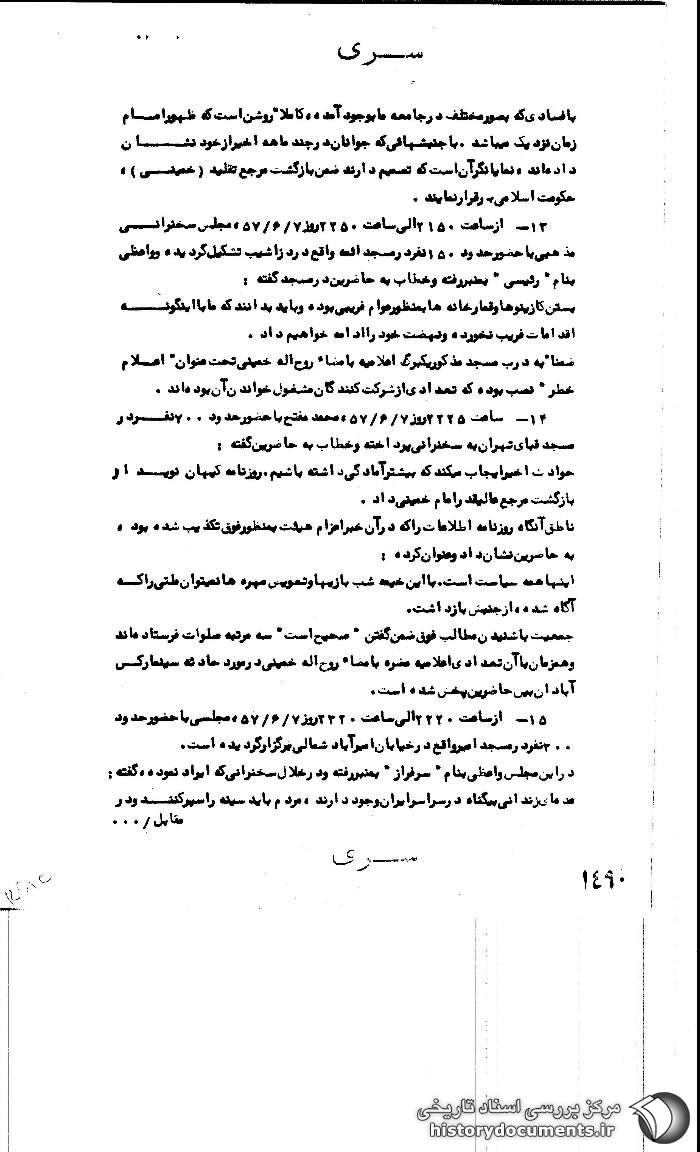 سری
با فسادی که بصور مختلف در جامعه ما بوجود آمده، کاملا" روشن است که ظهور امام
زمان نزدیک میباشد. با جنبشهائی که جوانان در چند ماهه اخیر از خود نشان
داده‌اند، نمایانگر آن است که تصمیم دارند ضمن بازگشت مرجع تقلید (خمینی)،
حکومت اسلامی برقرار نمایند.
۱۳- از ساعت ۲۱۵۰ الی ساعت ۲۲۵۰ روز ۵۷/۶/۷، مجلس سخنرانی
مذهبی با حضور حدود ۱۵۰ نفر در مسجد ائمه واقع در دزاشیب تشکیل گردیده و واعظی
بنام "رئیسی" بمنبر رفته و خطاب به حاضرین در مسجد گفته:
بستن کازینوها و قمارخانه ها بمنظور عوام فریبی بوده و باید بدانند که ما با اینگونه
اقدامات فریب نخورده و نهضت خود را ادامه خواهیم داد.
ضمنا" به درب مسجد مذکور یکبرگ اعلامیه بامضاء روح اله خمینی تحت عنوان "اعلام
خطر" نصب بوده که تعدادی از شرکت کنندگان مشغول خواندن آن بوده‌اند.
۱۴- ساعت ۲۲۲۵ روز ۵۷/۶/۷، محمد مفتح با حضور حدود ۷۰۰ نفر در
مسجد قبای تهران به سخنرانی پرداخته و خطاب به حاضرین گفته:
حوادث اخیر ایجاب میکند که بیشتر آمادگی داشته باشیم. روزنامه کیهان نوید از
بازگشت مرجع عالیقدر امام خمینی داد.
ناطق آنگاه روزنامه اطلاعات را که در آن خبر اعزام هیئت بمنظور فوق تکذیب شده بود،
به حاضرین نشان داد و عنوان کرده:
اینها همه سیاست است. با این خیمه شب بازیها و تعویض مهره ها نمیتوان ملتی را که
آگاه شده، از جنبش بازداشت.
جمعیت با شنیدن مطالب فوق ضمن گفتن "صحیح است" سه مرتبه صلوات فرستاده‌اند
و همزمان با آن تعدادی اعلامیه مضره بامضاء روح اله خمینی در مورد حادثه سینما رکس
آبادان بین حاضرین پخش شده است.
۱۵- از ساعت ۲۲۲۰ الی ساعت ۲۳۲۰ روز ۵۷/۶/۷، مجلسی با حضور حدود
۳۰۰ نفر در مسجد امیر واقع در خیابان امیرآباد شمالی برگزار گردیده است.
در این مجلس واعظی بنام "سرفراز" بمنبر رفته و در خلال سخنرانی که ایراد نموده، گفته:
عده‌ای زندانی بیگناه در سراسر ایران وجود دارند، مردم باید سینه را سپر کنند و در
مقابل /۰۰۰
سری
۱٤۹۰
مرکز بررسی اسناد تاریخی
historydocuments.ir